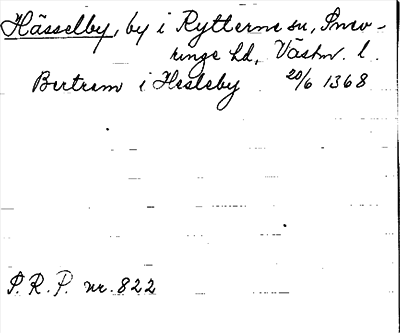 Hässelby, by i Rytterne sn, Snev-
ringe hd, Västm. l.
Bertram i Hesleby 20/6 1368
S.R.P. nr. 822